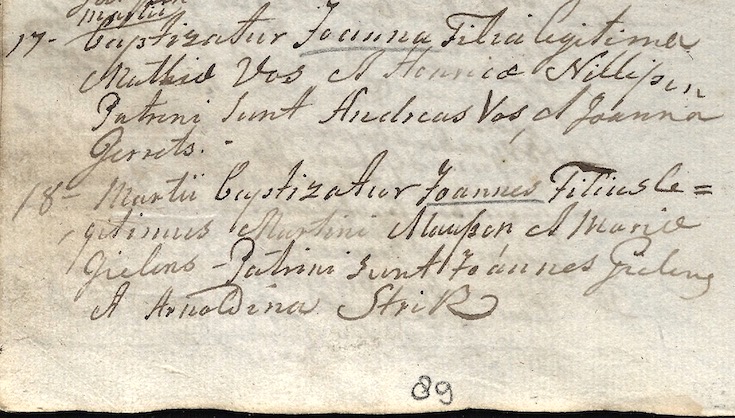 martii
17- baptizatur Joanna Filia legitima
Mathiæ Vos et Henricæ Nelissen
Patrini sunt Andreas Vos, et Joanna
Gerrets.-
18- Martii baptizatur Joannes Filius le=
gitimus Martini Maussen et Mariæ
Gielens - Patrini sunt Joannes Gielens
et Arnoldina Strik
89